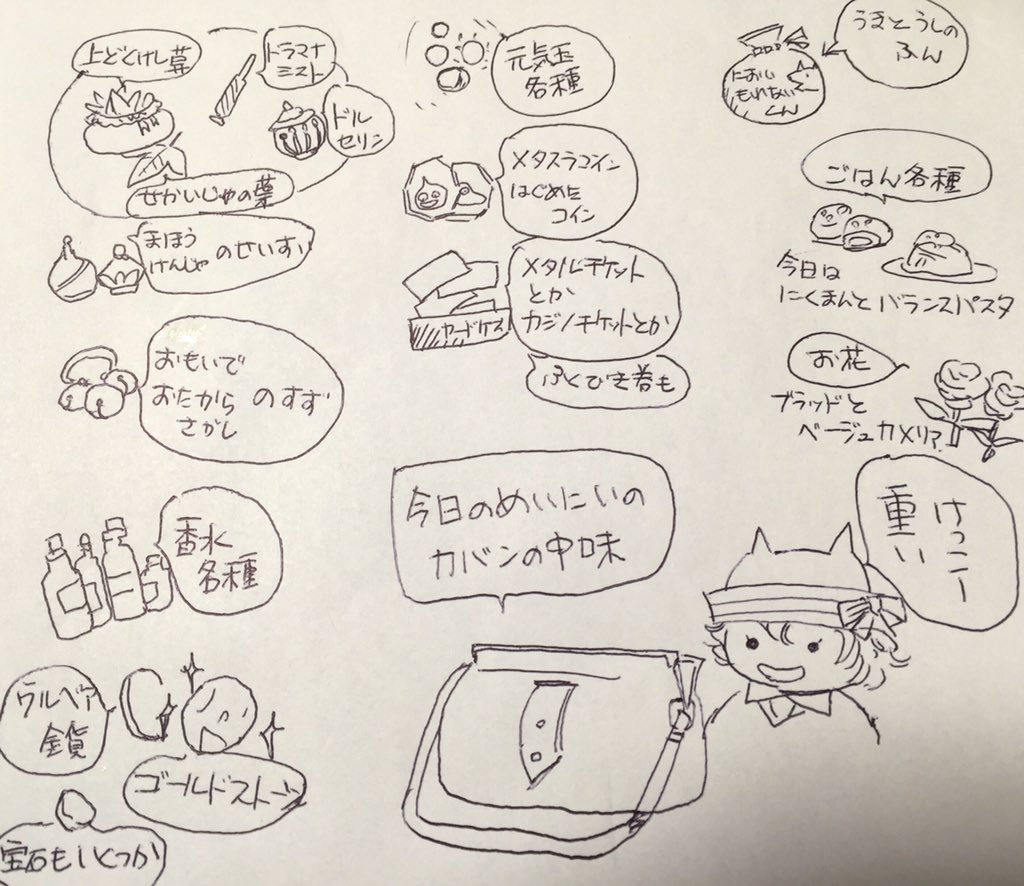 上どくけし草
ドラマナ
ミスト
ドル
セリン
せかいじゅの葉
まほう
けんじゃ
のせいすい
おもいで
おたから
さがし
のすず
香水
各種
ウルベア
金貨
ゴールドストーン
宝石もいくつか
元気玉
各種
メタスラコイン
はじめた
コイン
メタルチケット
とか
カジノチケットとか
カードケス
ふくびき券も
今日のめいにいの
カバンの中味
うまとうしの
ふん
におい
もれない
くん
ごはん各種
今日は
にくまんと バランスパスタ
お花
ブラッドと
ベージュカメリア
けっこー
重い